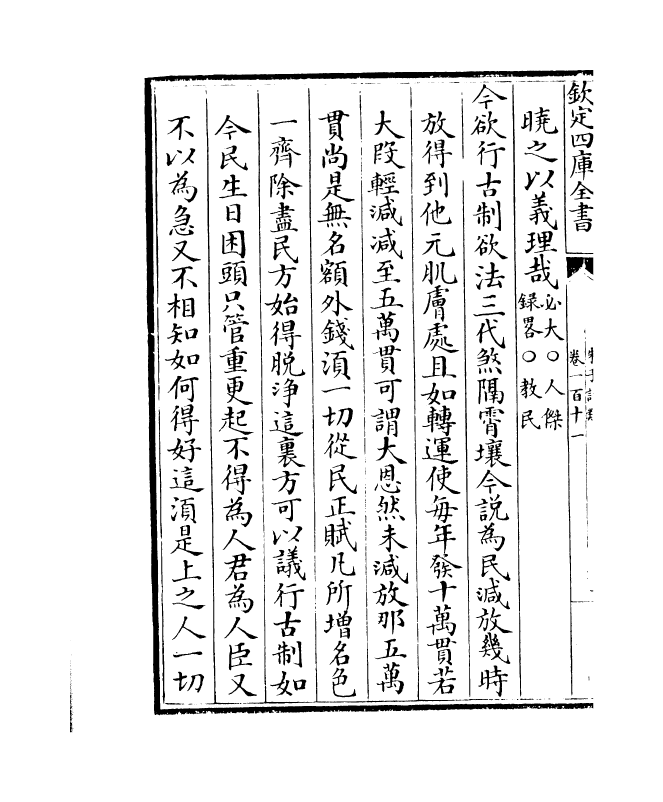 欽定四庫全書
卷一百十一
曉之以義理哉必大○人傑録畧○教民
今欲行古制欲法三代煞隔霄壤今説為民減放幾時
放得到他元肌膚處且如轉運使每年發十萬貫若
大段輕減減至五萬貫可謂大恩然未減放那五萬
貫尚是無名額外錢須一切從民正賦凡所增名色
一齊除盡民方始得脱浄這裏方可以議行古制如
今民生日困頭只管重更起不得為人君為人臣又
不以為急又不相知如何得好這須是上之人一切